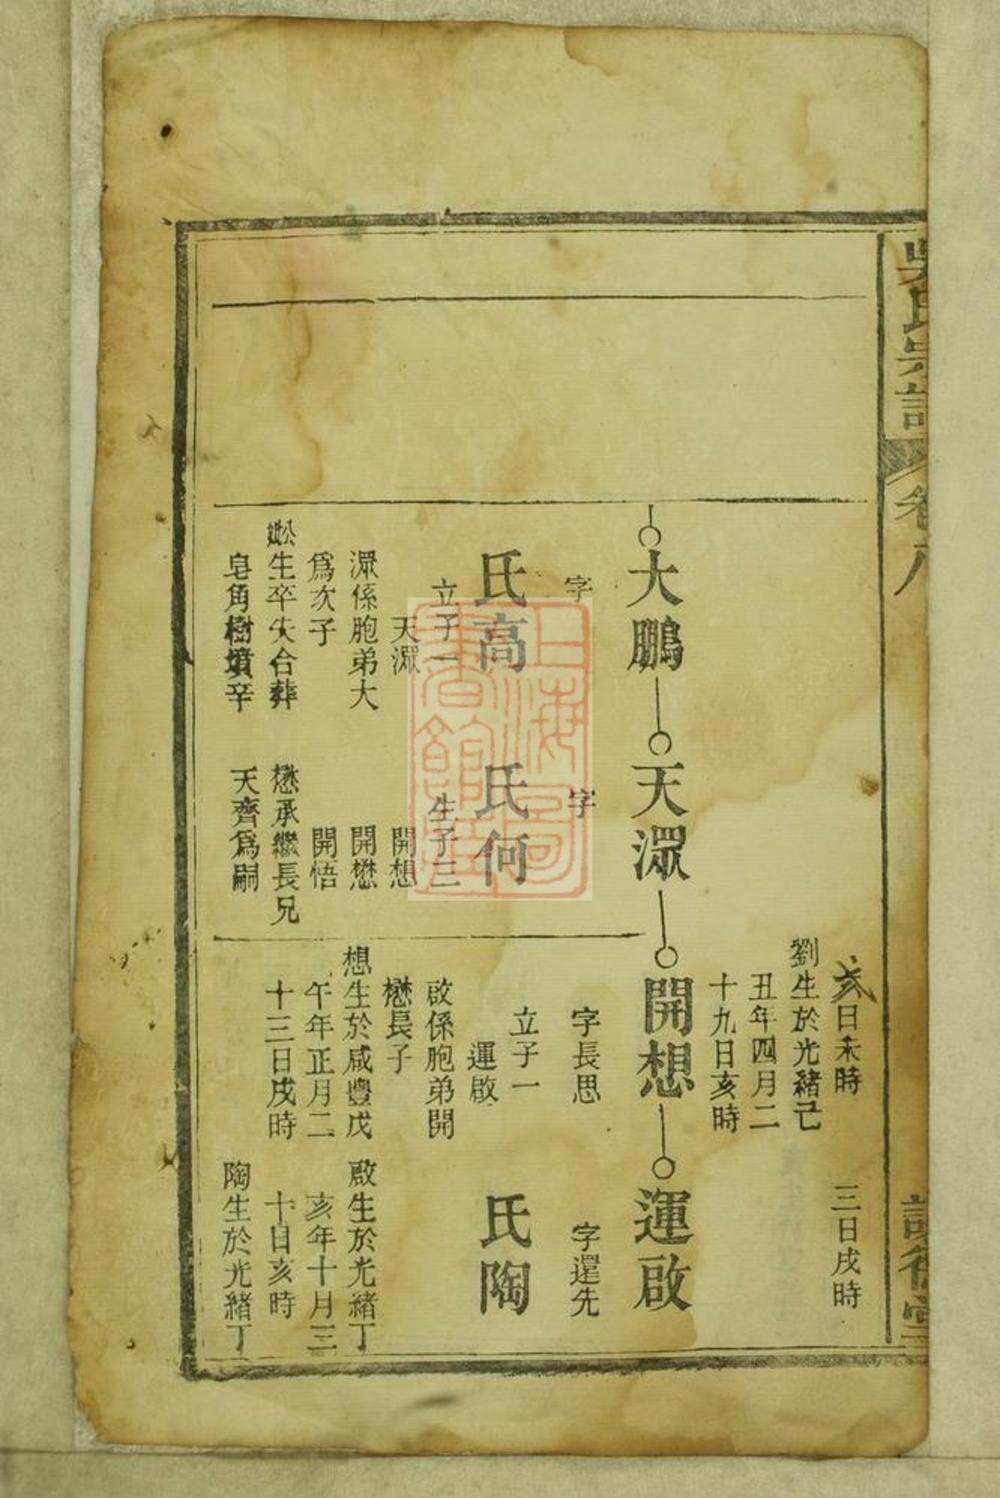 吳氏宗譜
卷八
亥日未時
劉生於光緒己
丑年四月二
十九日亥時
三日戌時
大鵬
字
氏高
立子一
天㴻
㴻係胞弟大
為次子
生卒失合葬
皂角樹墳辛
天㴻
字
氏何
生子三
開想
開懋
開悟
懋承繼長兄
天齊爲嗣
開想
字長思
立子一
運啟
啟係胞弟開
懋長子
想生於咸豐戊
午年正月二
十三日戌時
運啟
字還先
氏陶
啟生於光緒丁
亥年十月三
十日亥時
陶生於光緒丁
上海圖書館藏